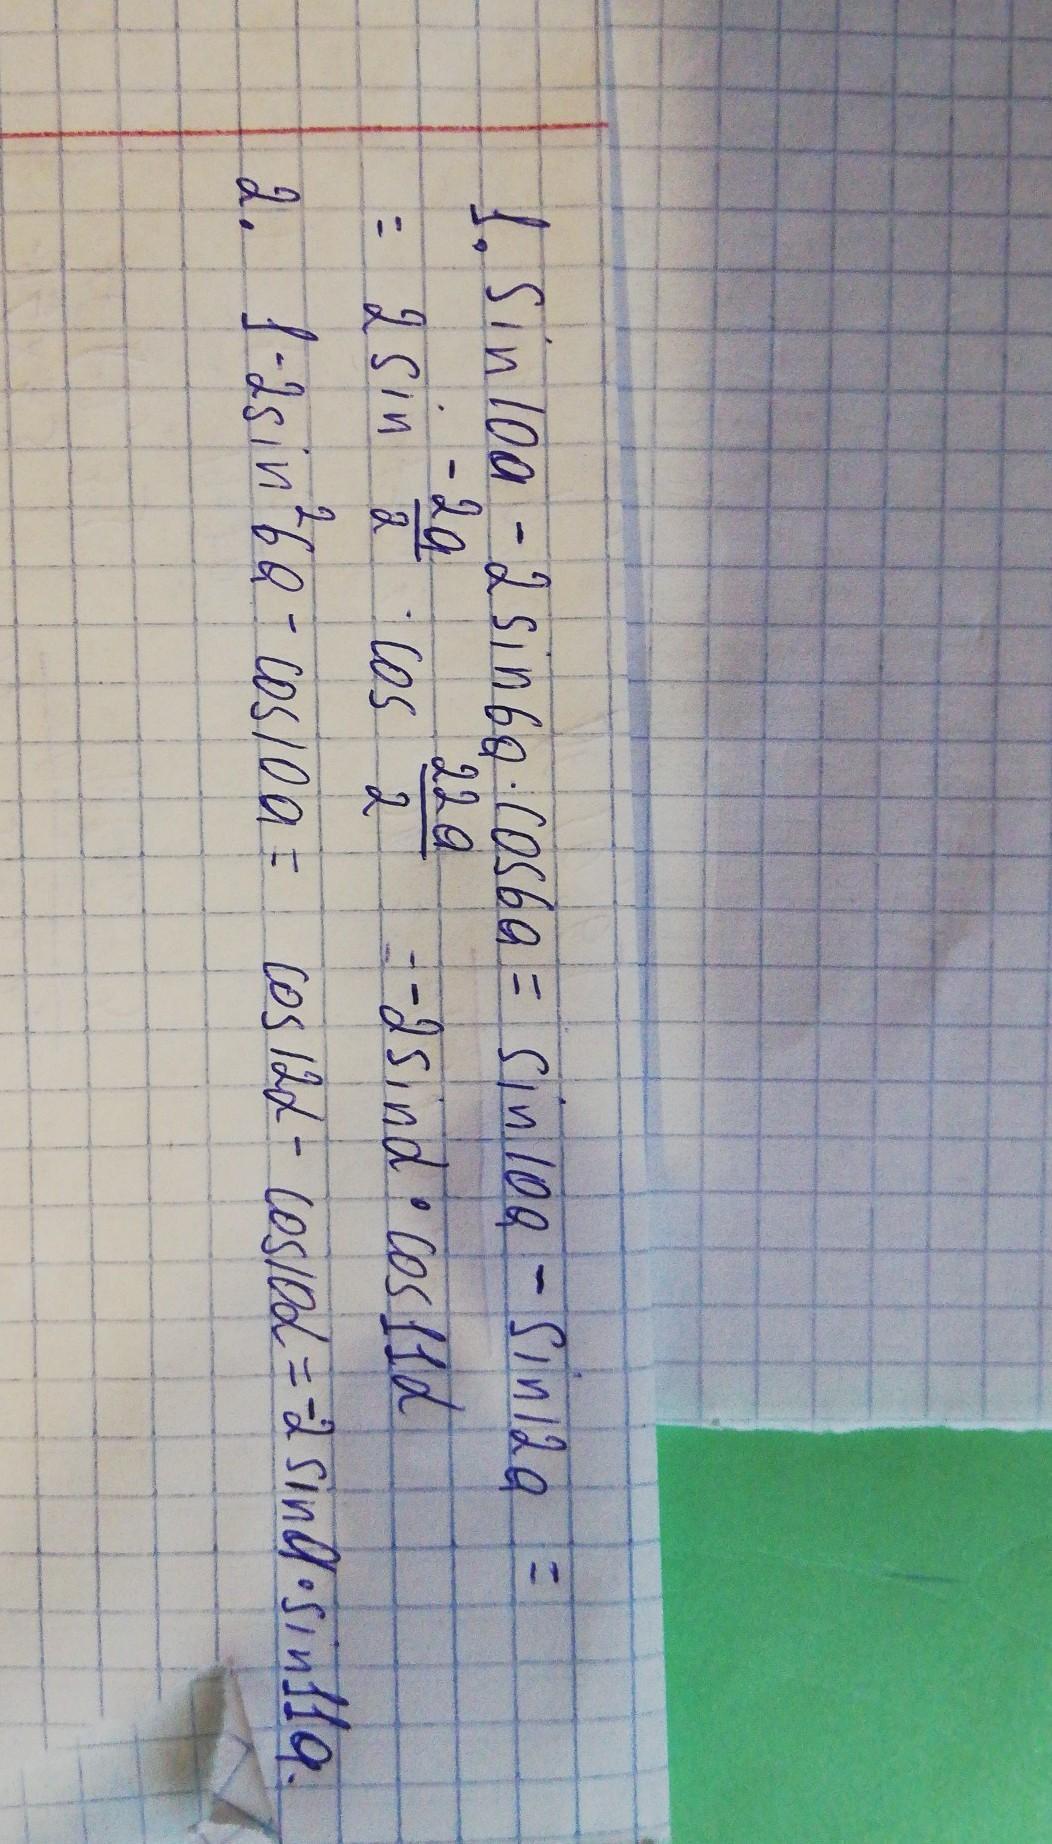 1. sin10a - 2sin6a·cos6a = sin10a - sin12a =
= 2 sin -2a/2 · cos 22a/2 = -2sinα·cos11α
2. 1-2sin²6a - cos10a = cos12α - cos10α = -2sina·sin11a.